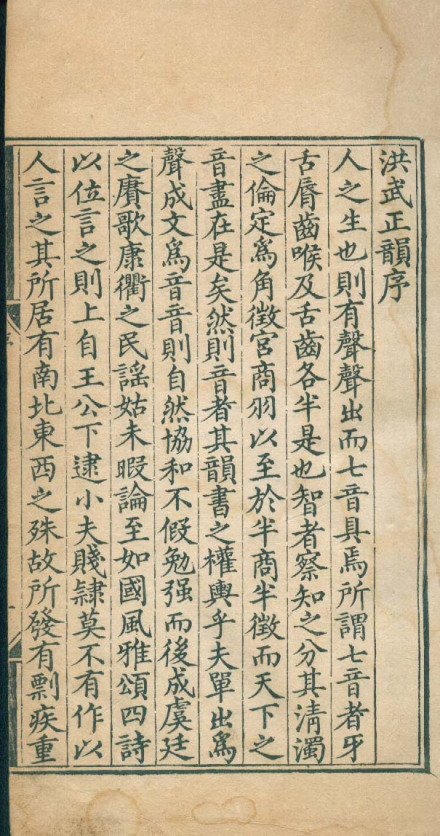 洪武正韻序
人之生也則有聲聲出而七音具焉所謂七音者牙
舌脣齒喉及舌齒各半是也智者察知之分其清濁
之倫定爲角徵宮商羽以至於半商半徵而天下之
音盡在是矣然則音者其韻書之權輿乎夫單出爲
聲成文爲音音則自然協和不假勉强而後成虞廷
之賡歌康衢之民謠姑未暇論至如國風雅頌四詩
以位言之則上自王公下逮小夫賤隸莫不有作以
人言之其所居有南北東西之殊故所發有剽疾重